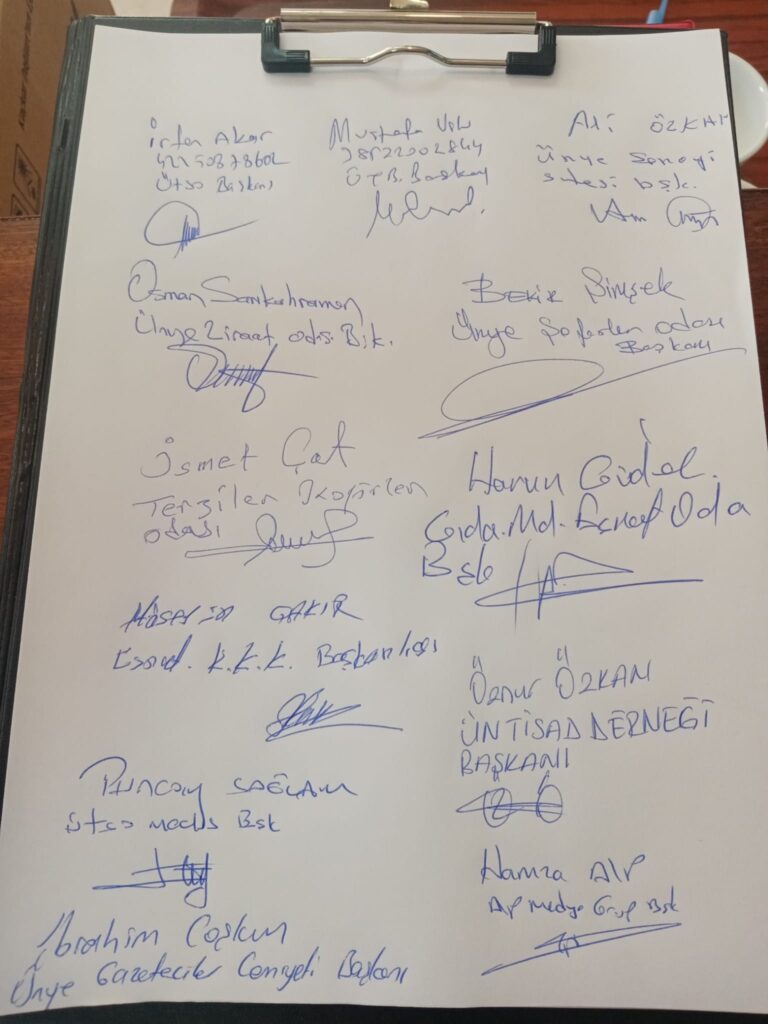 İrfan Akar
ÜTSO Başkanı
Mustafa
Ü.T.B. Başkanı
Ali ÖZKAN
Ünye Sanayi
sitesi bşk.
Osman Sarıkahraman
Ünye Ziraat odası Bşk.
BEKİR Şimşek
Ünye Şoförler odası
Başkanı
İsmet Çat
Terziler
odası
Harun Gidel
Gıda.Md. Esnaf Oda
Bşk
Hüseyin ÇAKIR
K.K.K. Başkanlığı
Öznur ÖZKAN
ÜNTİSAD DERNEĞİ
BAŞKANI
Tuncay SAĞLAM
ütso meclis Bşk
Hamza Alp
Alp medya Grup Bşk
İbrahim Coşkun
Ünye Gazeteciler Cemiyeti Başkanı